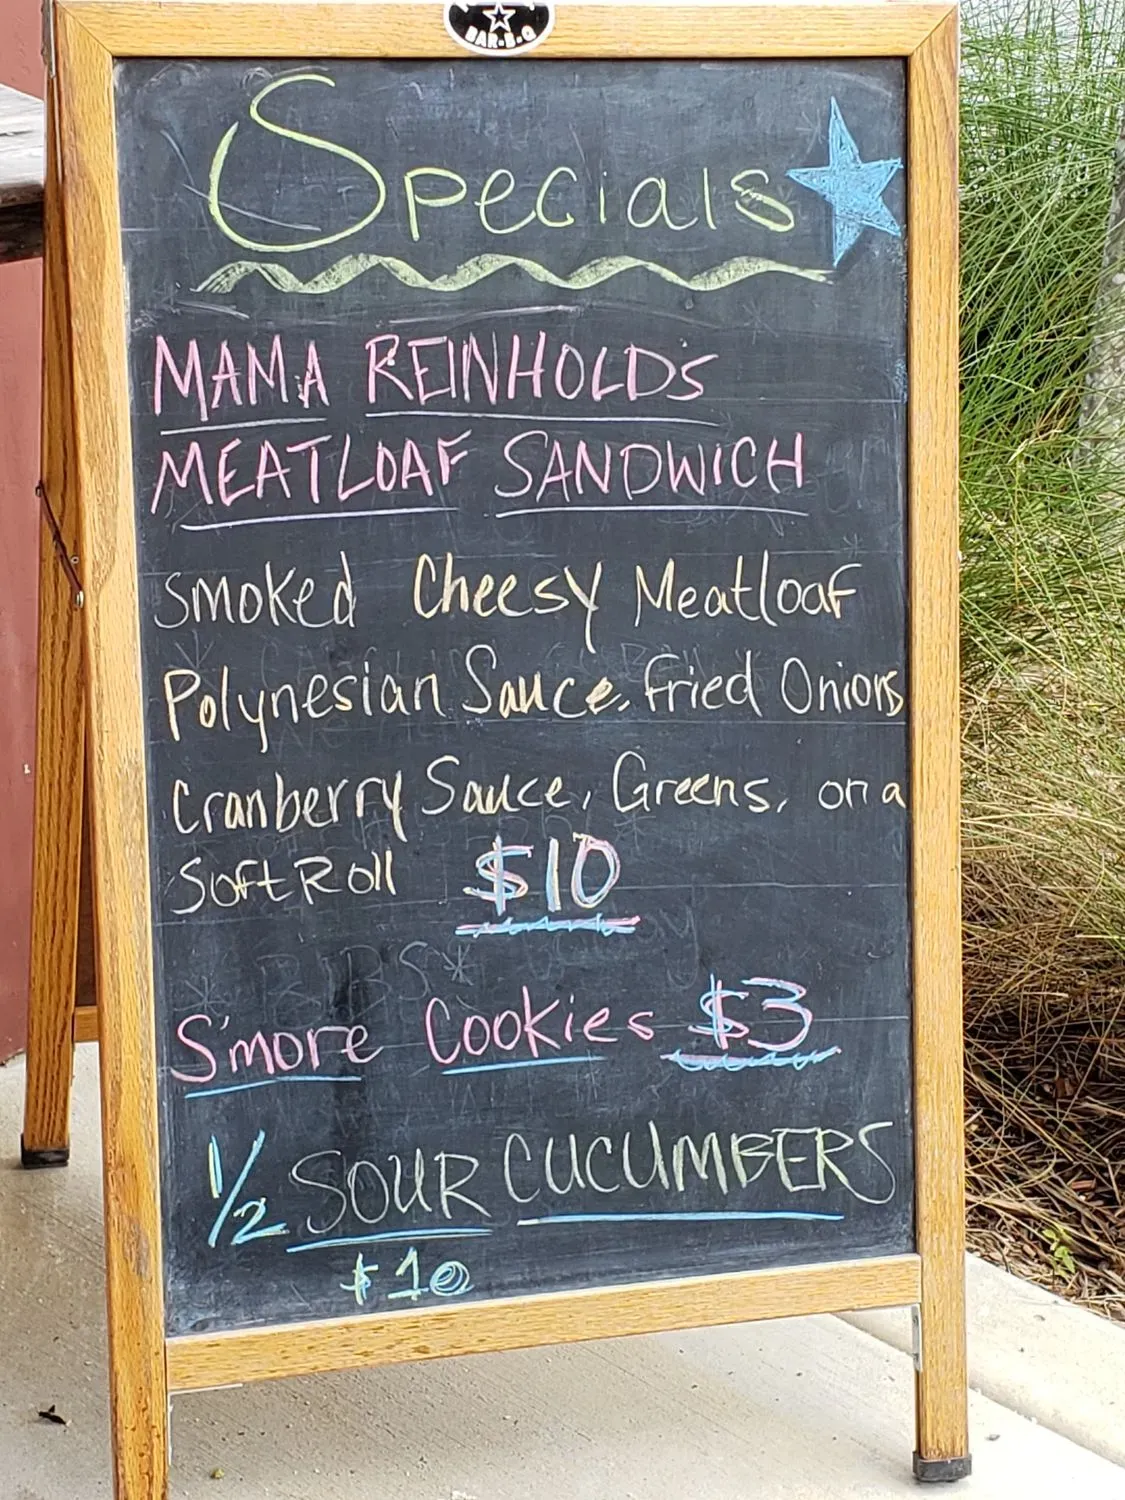 BAR-B-Q
Specials
MAMA REINHOLD'S
MEATLOAF SANDWICH
Smoked Cheesy Meatloaf
Polynesian Sauce, Fried Onions
Cranberry Sauce, Greens, on a
Soft Roll $10
S'more Cookies $3
1/2 SOUR CUCUMBERS
$10